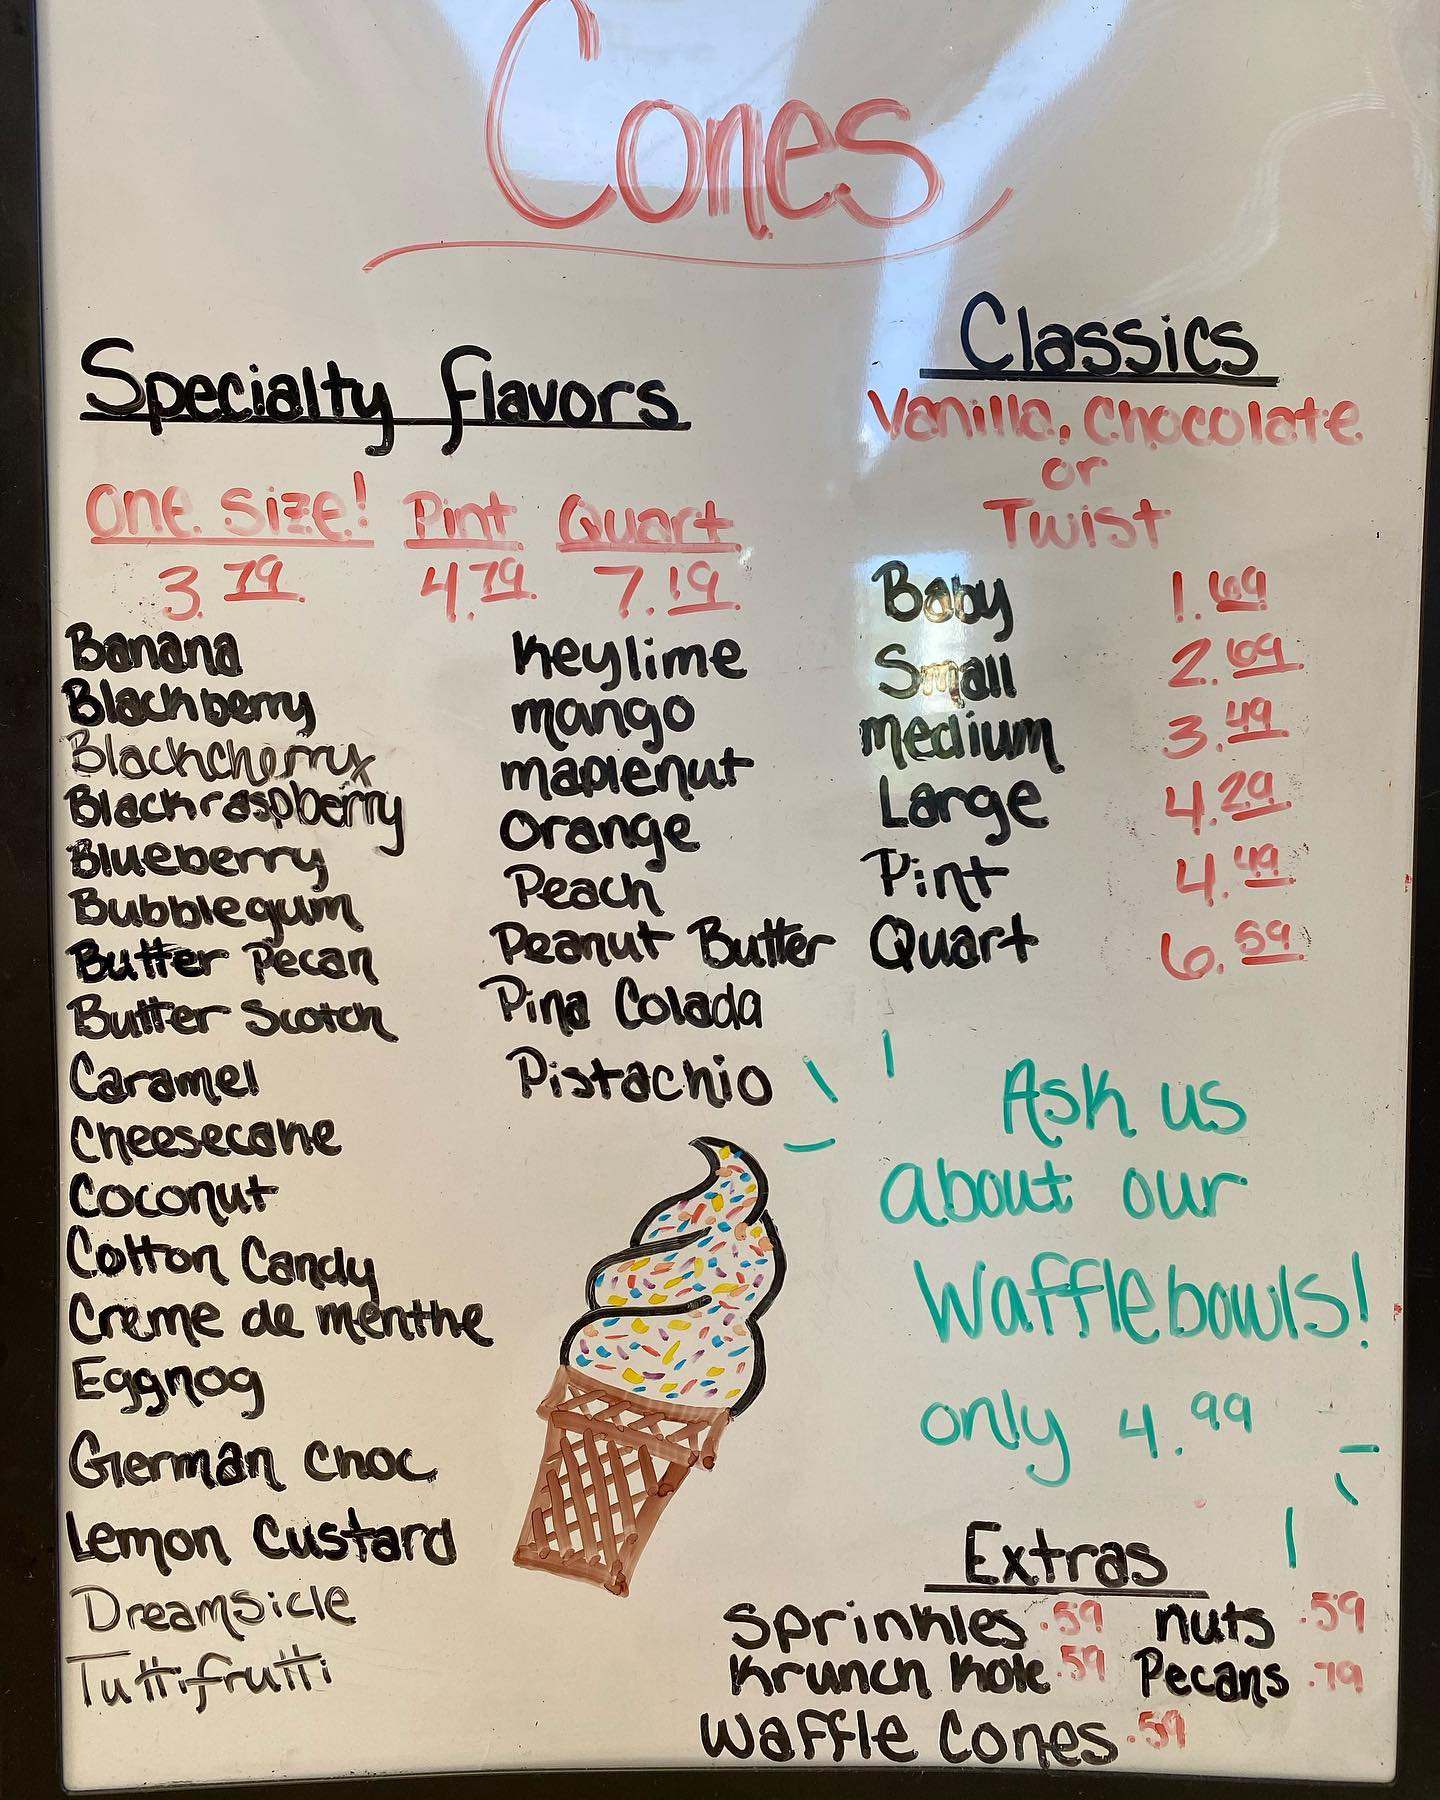 Cones
Specialty flavors
One Size! Pint Quart
3.79 4.79 7.19
Banana
Blackberry
Blackcherry
Blackraspberry
Blueberry
Bubblegum
Butter Pecan
Butter Scotch
Caramel
Cheesecake
Coconut
Cotton Candy
Creme de menthe
Eggnog
German choc
Lemon Custard
Dreamsicle
Tuttifrutti
Keylime
mango
maplenut
Orange
Peach
Peanut Butter
Pina Colada
Pistachio
Classics
Vanilla, Chocolate
or
Twist
Baby 1.69
Small 2.69
medium 3.49
Large 4.29
Pint 4.49
Quart 6.59
Ask us
about our
Wafflebowls!
only 4.99
Extras
Sprinkles .59 nuts .59
Krunch Kote .59 Pecans .79
Waffle Cones .59